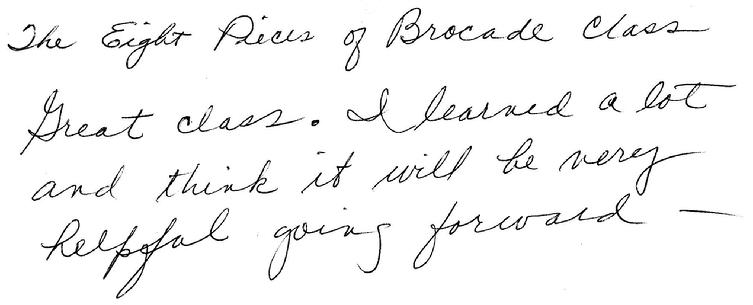 The Eight Pieces of Brocade Class
Great class. I learned a lot
and think it will be very
helpful going forward —